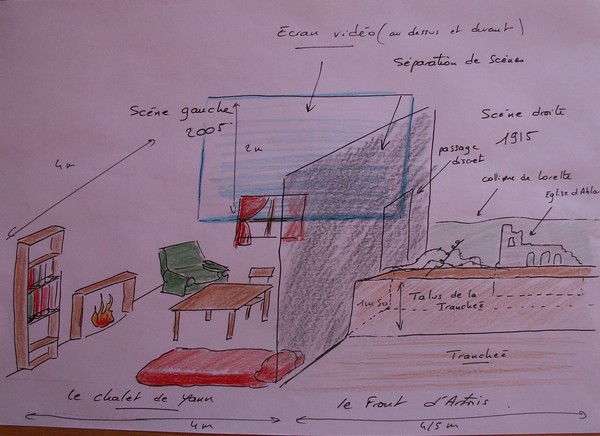 Ecran vidéo (au dessus et devant)
Séparation de Scènes
Scène gauche
2005
Scène droite
1915
4m
2m
passage
discret
colline de Lorette
Eglise d'Ablain
1m50
Talus de la
Tranchée
Tranchée
le chalet de Yann
le Front d'Artois
4m
4/5m